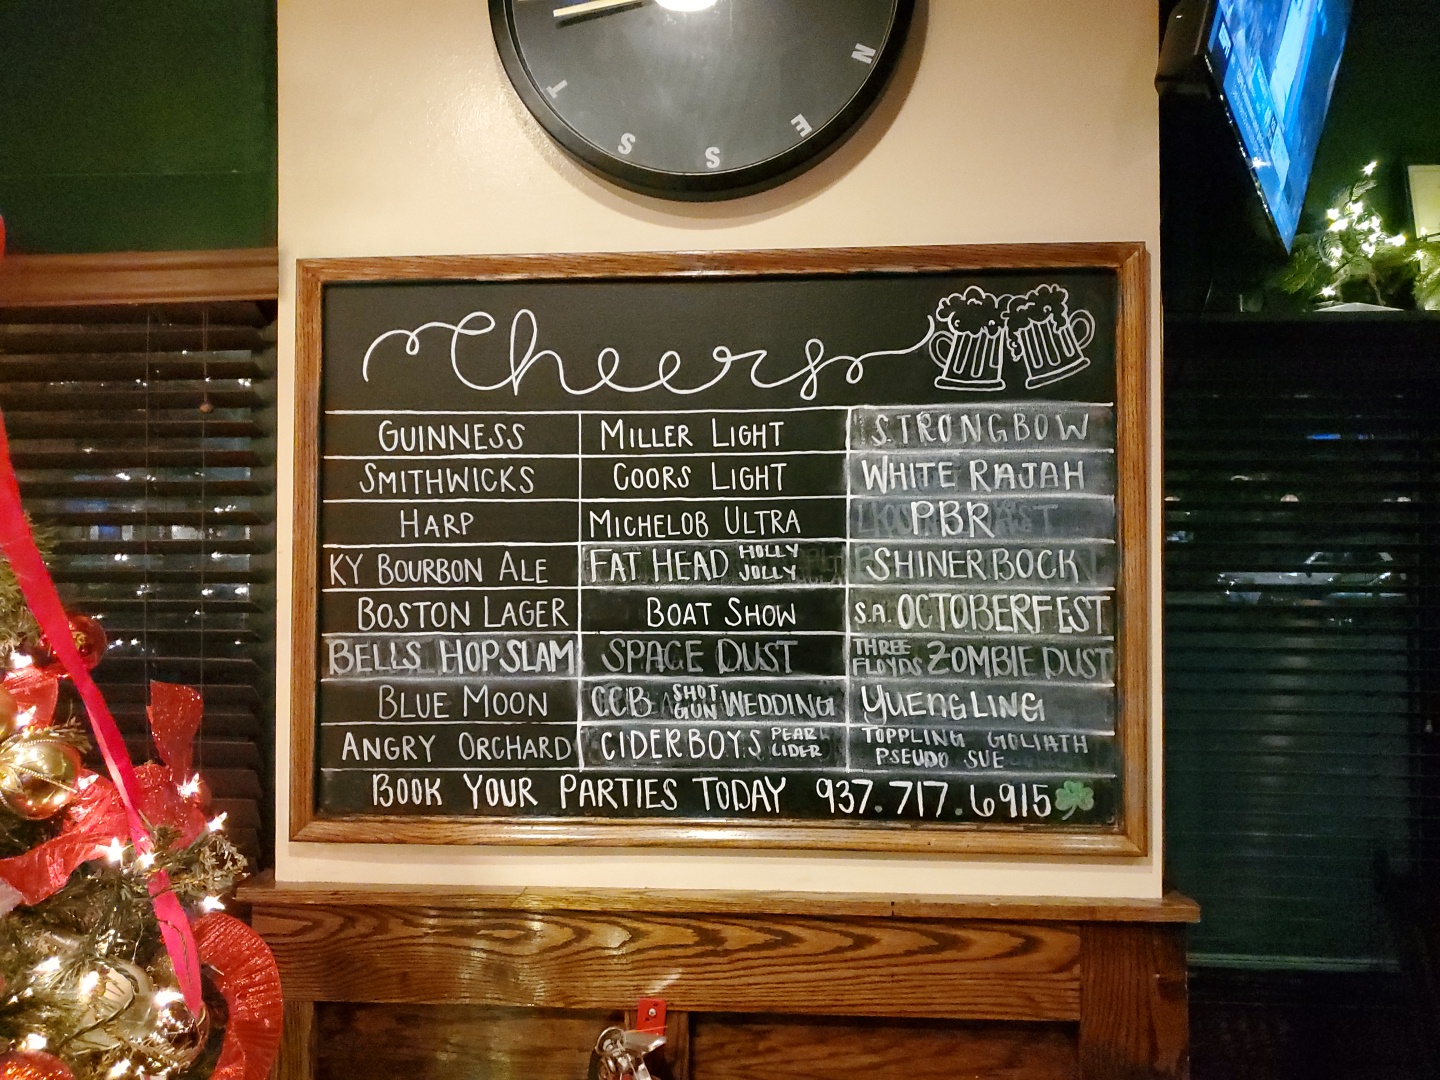 T S S E N
Cheers
GUINNESS MILLER LIGHT STRONGBOW
SMITHWICKS COORS LIGHT WHITE RAJAH
HARP MICHELOB ULTRA PBR
KY BOURBON ALE FAT HEAD HOLLY JOLLY SHINER BOCK
BOSTON LAGER BOAT SHOW S.A. OCTOBERFEST
BELLS HOPSLAM SPACE DUST THREE FLOYDS ZOMBIE DUST
BLUE MOON CCB SHOT GUN WEDDING YUENGLING
ANGRY ORCHARD CIDERBOYS PEAR CIDER TOPPLING GOLIATH PSEUDO SUE
BOOK YOUR PARTIES TODAY 937.717.6915